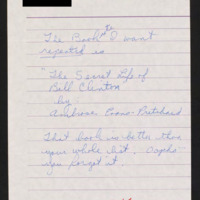 The Book I want
repeated is
"The Secret Life of
Bill Clinton
by
Ambrose Evans-Pritchard
That book is better than
your whole list.
you forget it.